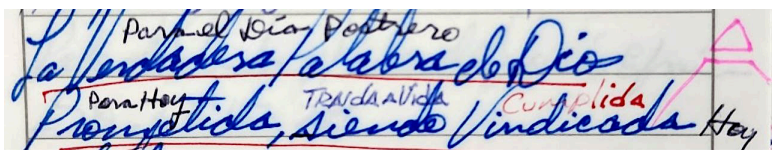 Para el Día Postrero
La Verdadera Palabra de Dios
Para Hoy Traida a Vida Cumplida
Prometida, siendo Vindicada Hoy